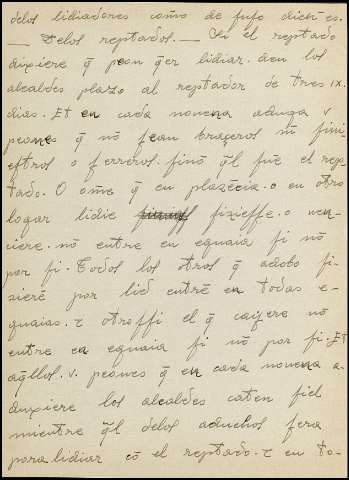 delos lidiadores como de suso dicħ es.
— Delos reptados. — Si el reptado
dixiere q̃ peon q̃er lidiar. den los
alcaldes plazo al reptador de tres IX.
dias. Et en cada nouena aduga v
peones q̃ nõ sean braçeros nĩ sini-
estros o ferreros. sinõ q̃l fue el rep-
tado. O ome q̃ en plazẽcia. o en otro
logar lidie fizieffe. o uen-
ciere. nõ entre en eguaia si nõ
por si. Todos los otros q̃ adobo fi-
zierẽ por lid entrẽ en todas e-
guaias. τ otrossi el q̃ cayere nõ
entre en eguaia si nõ por si. Et
aq̃llos. v. peones q̃ en cada nouena a-
duxiere los alcaldes caten fiel
mientre q̃l delos aduchos sera
para lidiar cõ el reptado. τ en to-